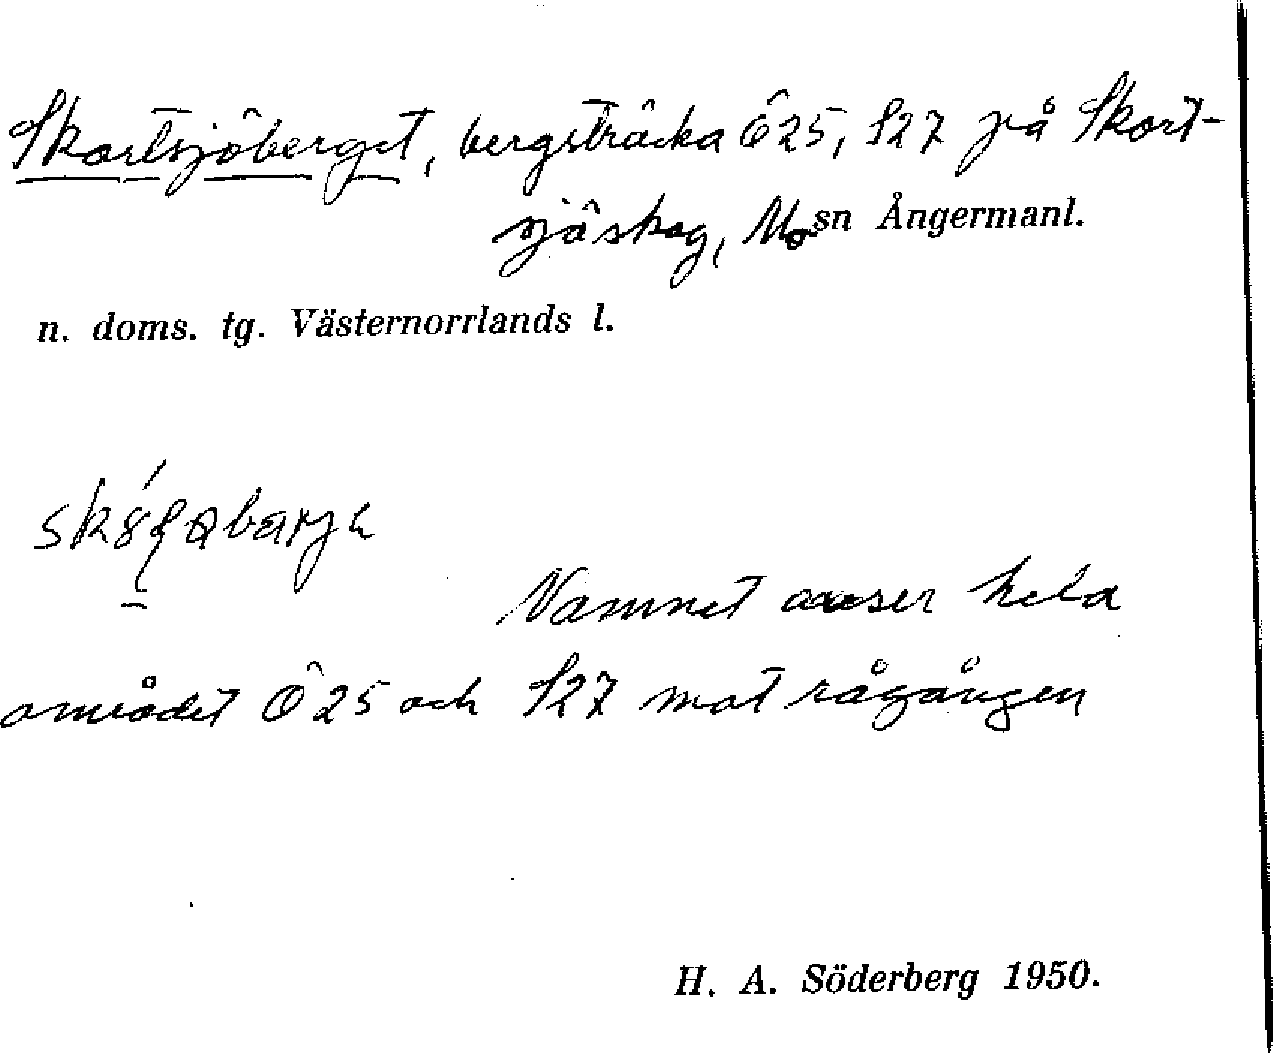 Skortsjöberget, bergsträcka Ö25, S27 på Skort-
sjöskog, Mo sn Ångermanl.
n. doms. tg. Västernorrlands l.
Namnet avser hela
området Ö25 och S27 mot rågången
H. A. Söderberg 1950.